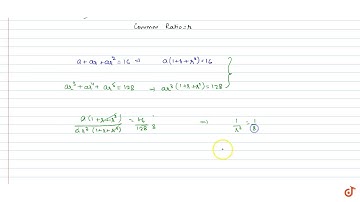 Common Ratio=r
a+ar+ar²=16 ⇒ a(1+r+r²)=16
ar³+ar⁴+ar⁵=128 → ar³(1+r+r²)=128
a(1+r+r²)/ar³(1+r+r²) = 16/128 8 ⇒ 1/r³=1/8
doubtnut